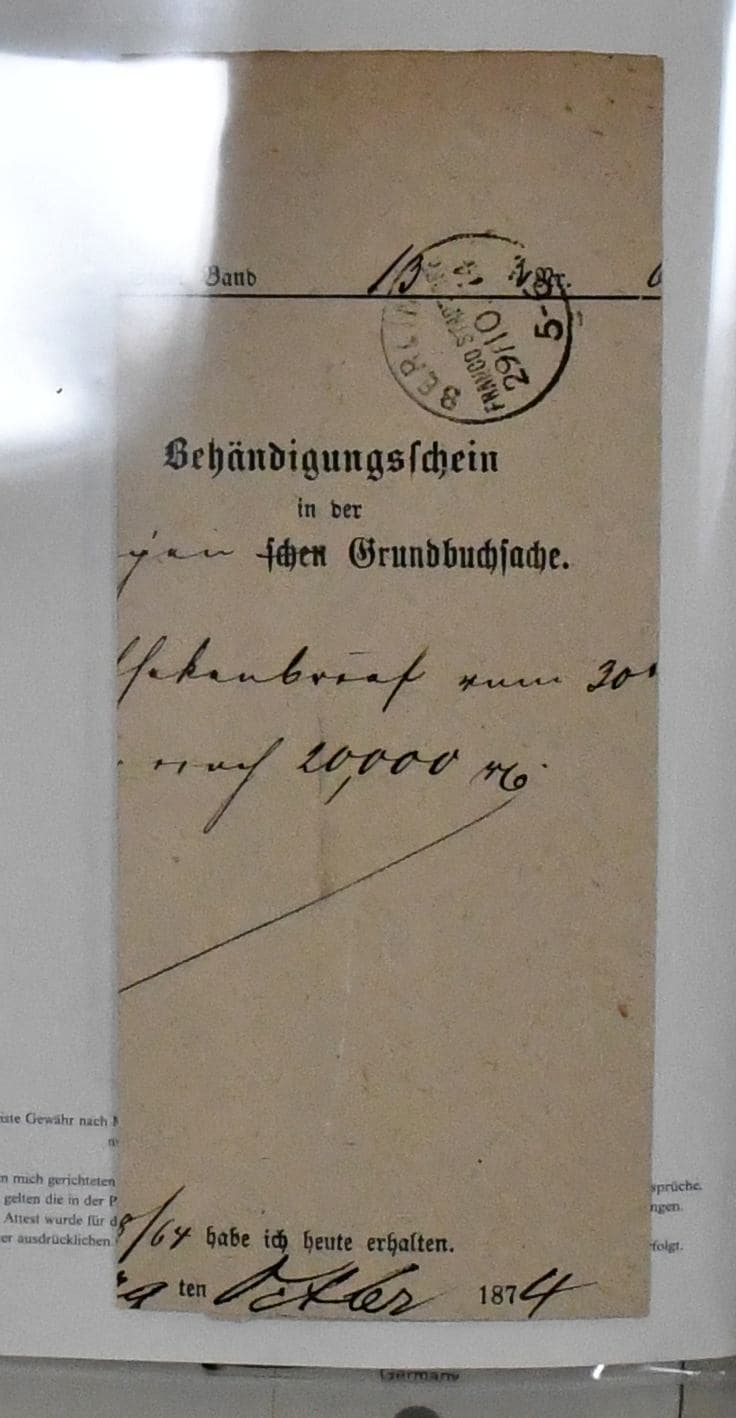 Band 13 Nr.
BERLIN
FRANCO STADT
29/10
5-8
Behändigungsschein
in der
schen Grundbuchsache.
thekenbrief vom 30
noch 20,000
/64 habe ich heute erhalten.
29 ten Octber 1874
iste Gewähr nach
n mich gerichteten
gelten die in der P
Attest wurde für d
er ausdrücklichen
sprüche.
ngen.
folgt.
Germany